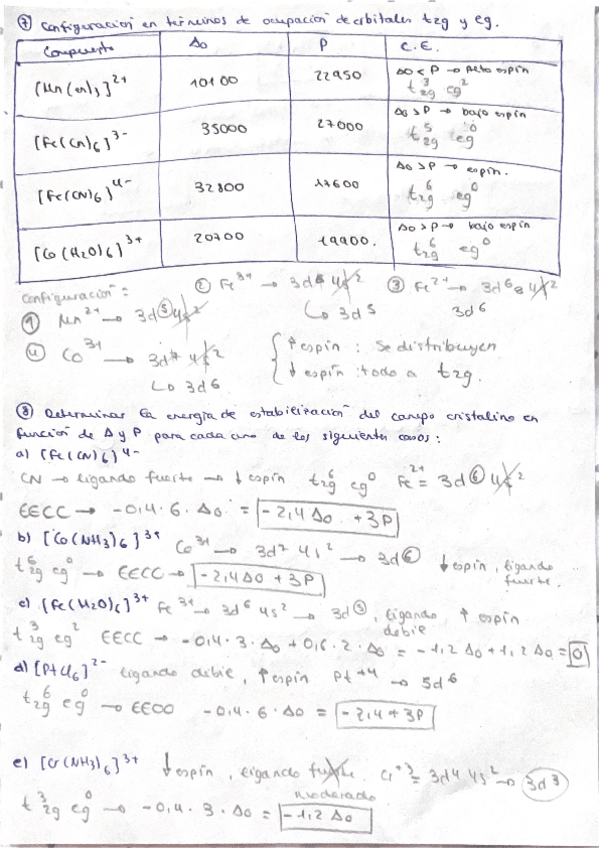 ⑦ Configuración en términos de ocupación de orbitales t2g y eg.
Compuesto Δo P C.E.
10100 22950 Δo < P → Alto espín
t2g³ eg²
[Fe(CN)6]³⁻ 35000 27000 Δo > P → bajo espín
t2g⁵ eg⁰
[Fe(CN)6]⁴⁻ 32800 17600 Δo > P → espin.
t2g⁶ eg⁰
[Co(H2O)6]³⁺ 20700 19900. Δo > P → bajo espín
t2g⁶ eg⁰
Configuración =
① Mn²⁺ → 3d⁵ 4s²
② Fe³⁺ → 3d⁶ 4s²
↳ 3d⁵
③ Fe²⁺ → 3d⁶ 4s²
3d⁶
④ Co³⁺ → 3d⁷ 4s²
↳ 3d⁶
↑ espín : Se distribuyen
↓ espín : todo a t2g.
⑧ Determinar la energía de estabilización del campo cristalino en
función de Δ y P para cada uno de los siguientes casos :
a) [Fe(CN)6]⁴⁻
CN → ligando fuerte → ↓ espín t2g⁶ eg⁰ Fe²⁺ = 3d⁶ 4s²
EECC → -0,4 · 6 · Δo = -2,4 Δo + 3P
b) [Co(NH3)6]³⁺ Co³⁺ → 3d⁷ 4s² → 3d⁶ ↓ espín, ligando fuerte.
t2g⁶ eg⁰ → EECC → -2,4 Δo + 3P
c) [Fe(H2O)6]³⁺ Fe³⁺ → 3d⁶ 4s² → 3d⁵, ligando debie ↑ espín
t2g³ eg² EECC → -0,4 · 3 · Δo + 0,6 · 2 · Δo = -1,2 Δo + 1,2 Δo = 0
d) [PtCl6]²⁻ ligando debie, ↑ espín Pt⁺⁴ → 5d⁶
t2g⁶ eg⁰ → EECC -0,4 · 6 · Δo = -2,4 + 3P
e) [Cr(NH3)6]³⁺ ↓ espín, ligando fuerte. Cr⁺³ = 3d⁴ 4s² → 3d³
moderado
t2g³ eg⁰ → -0,4 · 3 · Δo = -1,2 Δo